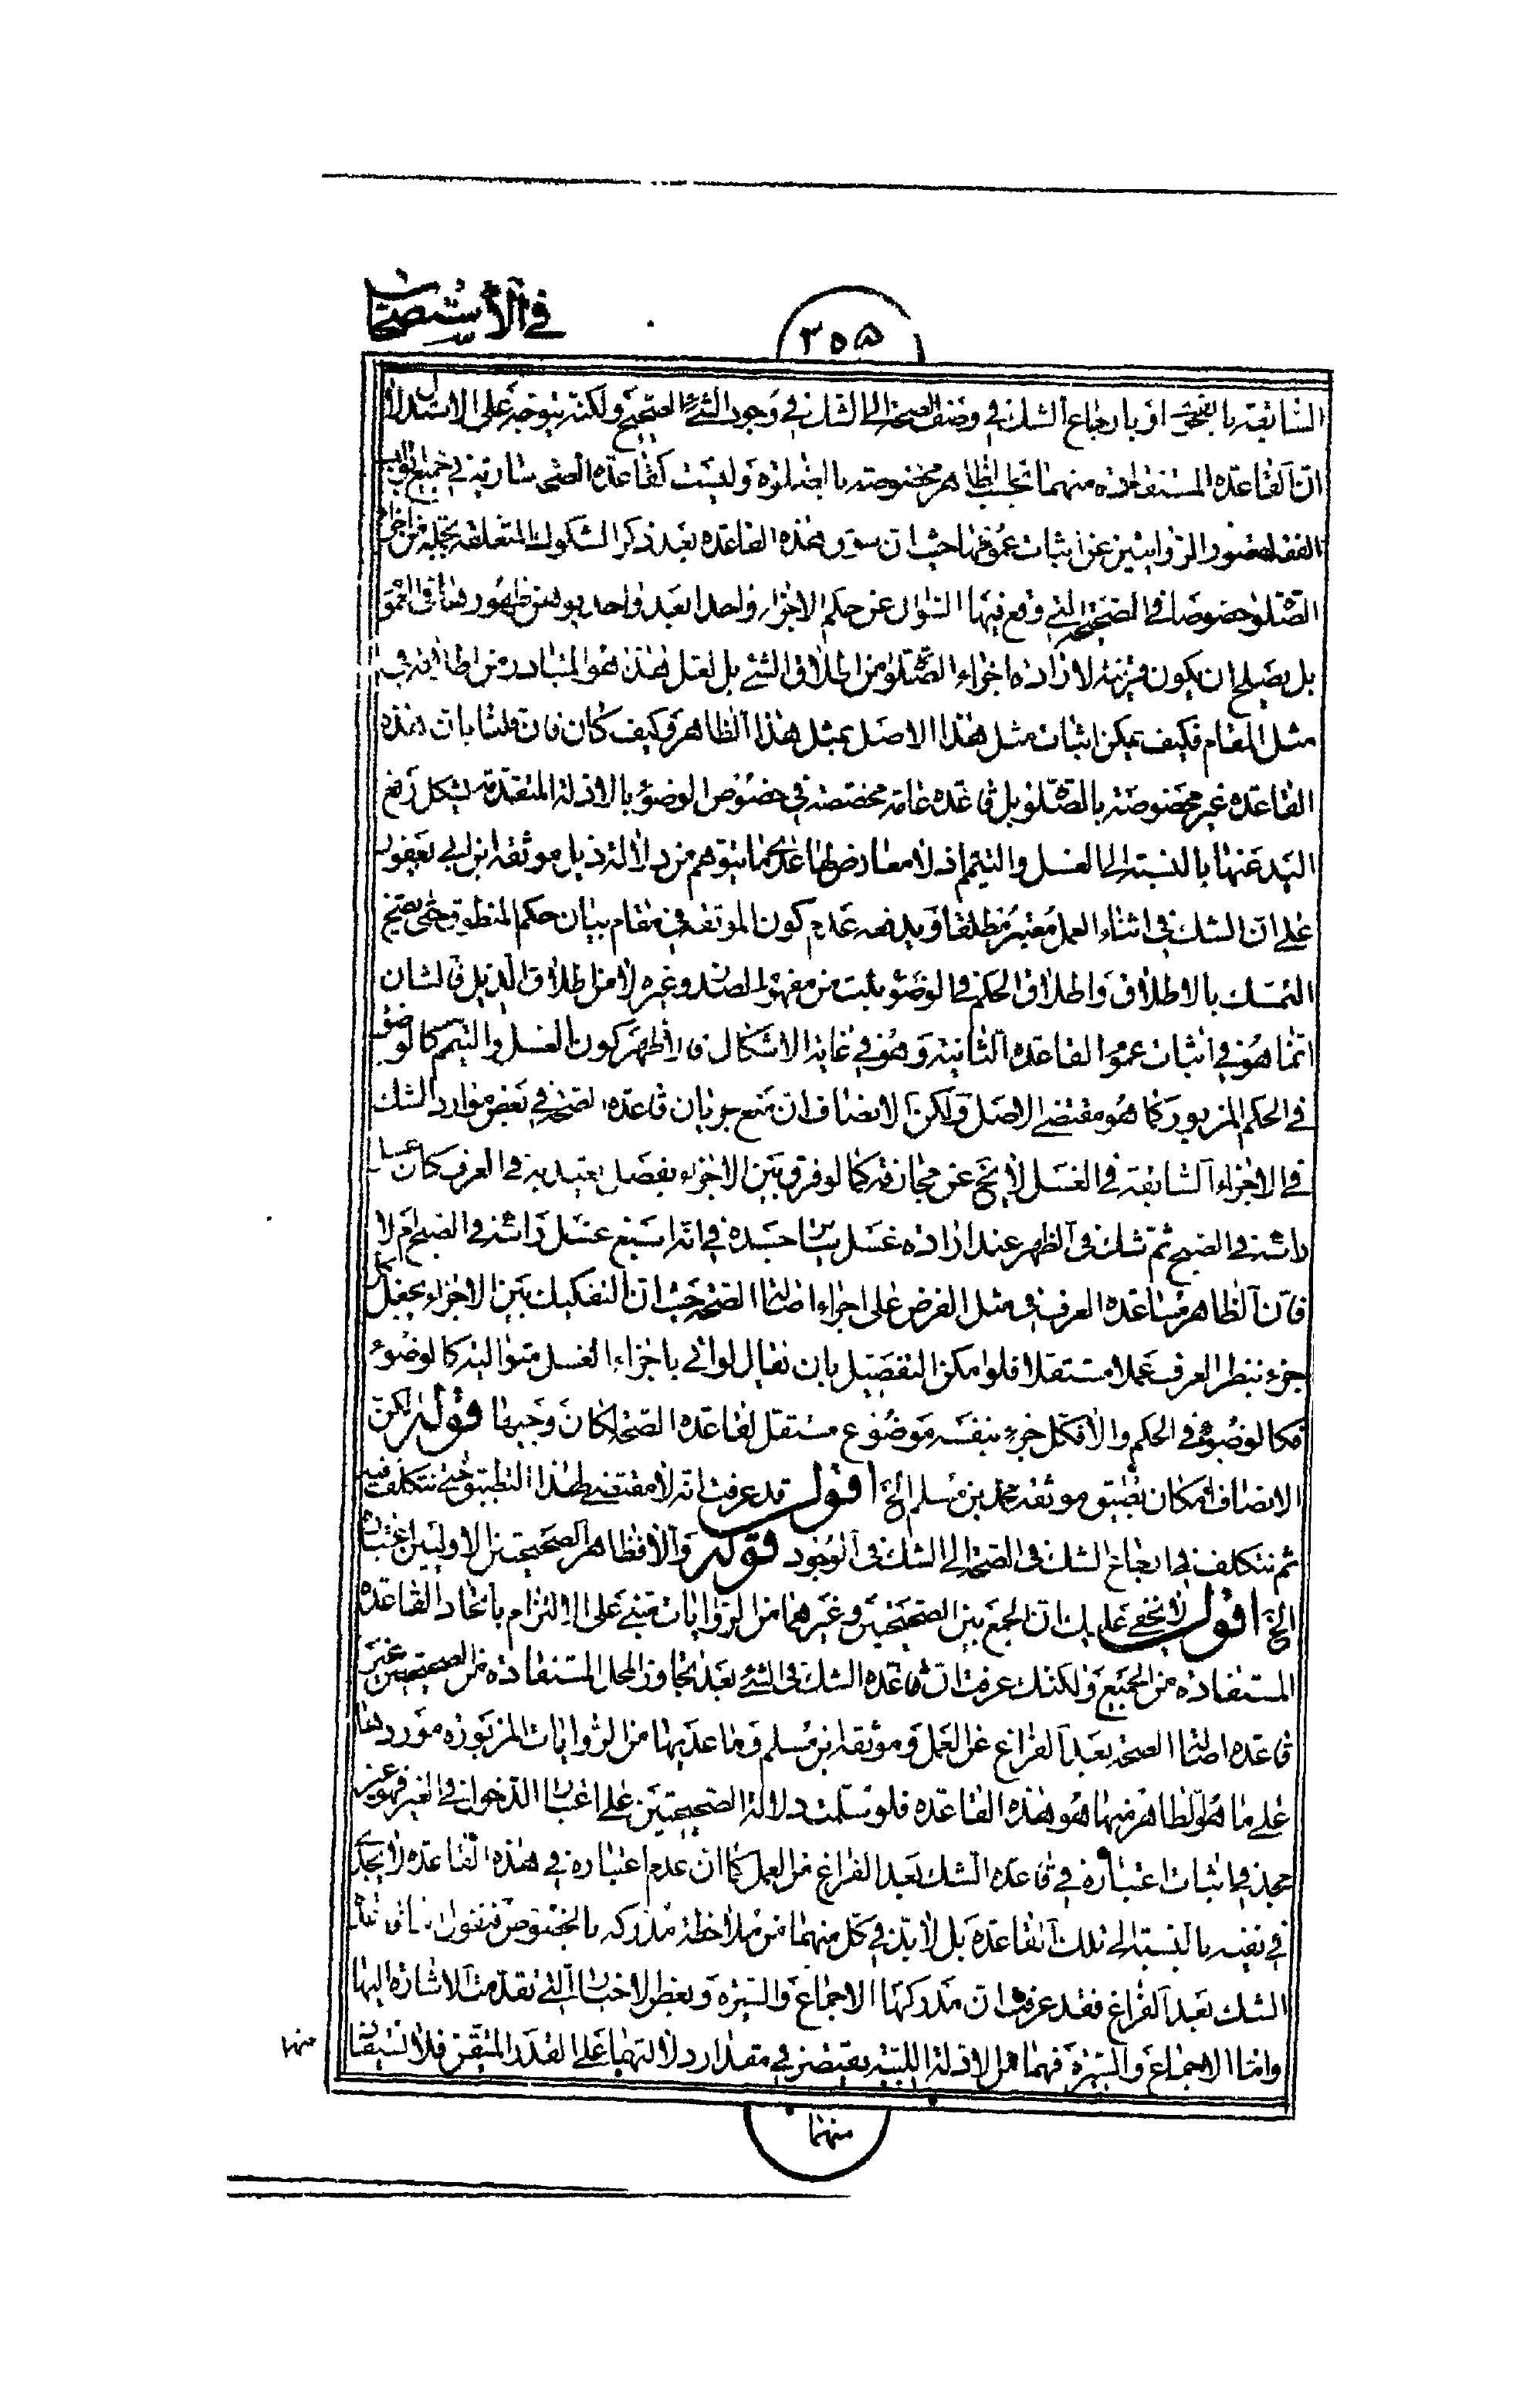 في الاستصحاب
٣٥٥
السابقة بالتمحل او بارجاع الشك في وصف الصحة الى الشك في وجود الشئ الصحيح ولكنه يتوجه على الاستدلال
ان القاعدة المستفادة منهما بحسب الظاهر مخصوصة بالصلوة وليست كقاعدة الصحة سارية في جميع ابواب
الفقه لقصور الروايتين عن اثبات عمومها حيث ان سوق هذه القاعدة بعد ذكر الشكوك المتعلقة بجملة من اجزاء
الصلوة خصوصا في الصحيحة التي وقع فيها السؤال عن حكم الاجزاء واحدا بعد واحد يوهن ظهورها في العموم
بل يصلح ان يكون قرينة لارادة اجزاء الصلوة من اطلاق الشئ بل لعل هذا هو المتبادر من اطلاقه في
مثل المقام فكيف يمكن اثبات مثل هذا الاصل بمثل هذا الظاهر وكيف كان فان قلنا بان هذه
القاعدة غير مخصوصة بالصلوة بل قاعدة عامة مخصصة في خصوص الوضوء بالادلة المتقدمة يشكل رفع
اليد عنها بالنسبة الى الغسل والتيمم اذ لا معارض لها عدا ما يتوهم من دلالة ذيل موثقة ابن ابي يعفور
على ان الشك في اثناء العمل معتبر مطلقا ويدفعه عدم كون الموثقة في مقام بيان حكم المنطوق حتى يصح
التمسك بالاطلاق واطلاق الحكم في الوضوء يثبت من مفهوم الصدر وغيره لا من اطلاق الذيل فالشان
انما هو في اثبات عموم القاعدة الثانية وهو في غاية الاشكال فالاظهر كون الغسل والتيمم كالوضوء
في الحكم المزبور كما هو مقتضى الاصل ولكن الانصاف ان منع جريان قاعدة الصحة في بعض موارد الشك
في الاجزاء السابقة في الغسل لا يخ عن مجازفة كما لو فرق بين الاجزاء بفصل يعتد به في العرف كان غسل
راسه في الصبح ثم شك في الظهر عند ارادة غسل سائر جسده في انه اسبغ غسل راسه في الصبح ام لا
فان الظاهر مساعدة العرف في مثل الفرض على اجراء اصالة الصحة حيث ان التفكيك بين الاجزاء يجعل كل
جزء بنظر العرف عملا مستقلا فلو امكن التفصيل بان يقال لو اتى باجزاء الغسل متوالية كالوضوء
فكالوضوء في الحكم والا فكل جزء بنفسه موضوع مستقل لقاعدة الصحة لكان وجيها قوله لكن
الانصاف امكان تطبيق موثقة محمد بن مسلم الخ اقول قد عرفت انه لا مقتضى لهذا التطبيق حتى نتكلف فيه
ثم نتكلف في ارجاع الشك في الصحة الى الشك في الوجود قوله والا فظاهر الصحيحتين الاوليين اعتباره
الخ اقول لا يخفى عليك ان الجمع بين الصحيحتين وغيرهما من الروايات مبني على الالتزام باتحاد القاعدة
المستفادة من الجميع ولكنك عرفت ان قاعدة الشك في الشئ بعد تجاوز المحل المستفادة من الصحيحتين غير
قاعدة اصالة الصحة بعد الفراغ عن العمل وموثقة ابن مسلم وما عديها من الروايات المزبورة موردها
على ما هو الظاهر منها هو هذه القاعدة فلو سلمت دلالة الصحيحتين على اعتبار الدخول في الغير فهو غير
مجد في اثبات اعتباره في قاعدة الشك بعد الفراغ من العمل كما ان عدم اعتباره في هذه القاعدة لا يجدي
في نفيه بالنسبة الى تلك القاعدة بل لا بد في كل منهما من ملاحظة مدركه بالخصوص فنقول اما قاعدة
الشك بعد الفراغ فقد عرفت ان مدركها الاجماع والسيرة وبعض الاخبار التي تقدمت الاشارة اليها
واما الاجماع والسيرة فهما من الادلة اللبية يقتصر في مقدار دلالتهما على القدر المتيقن فلا تستفاد
منها
منهما